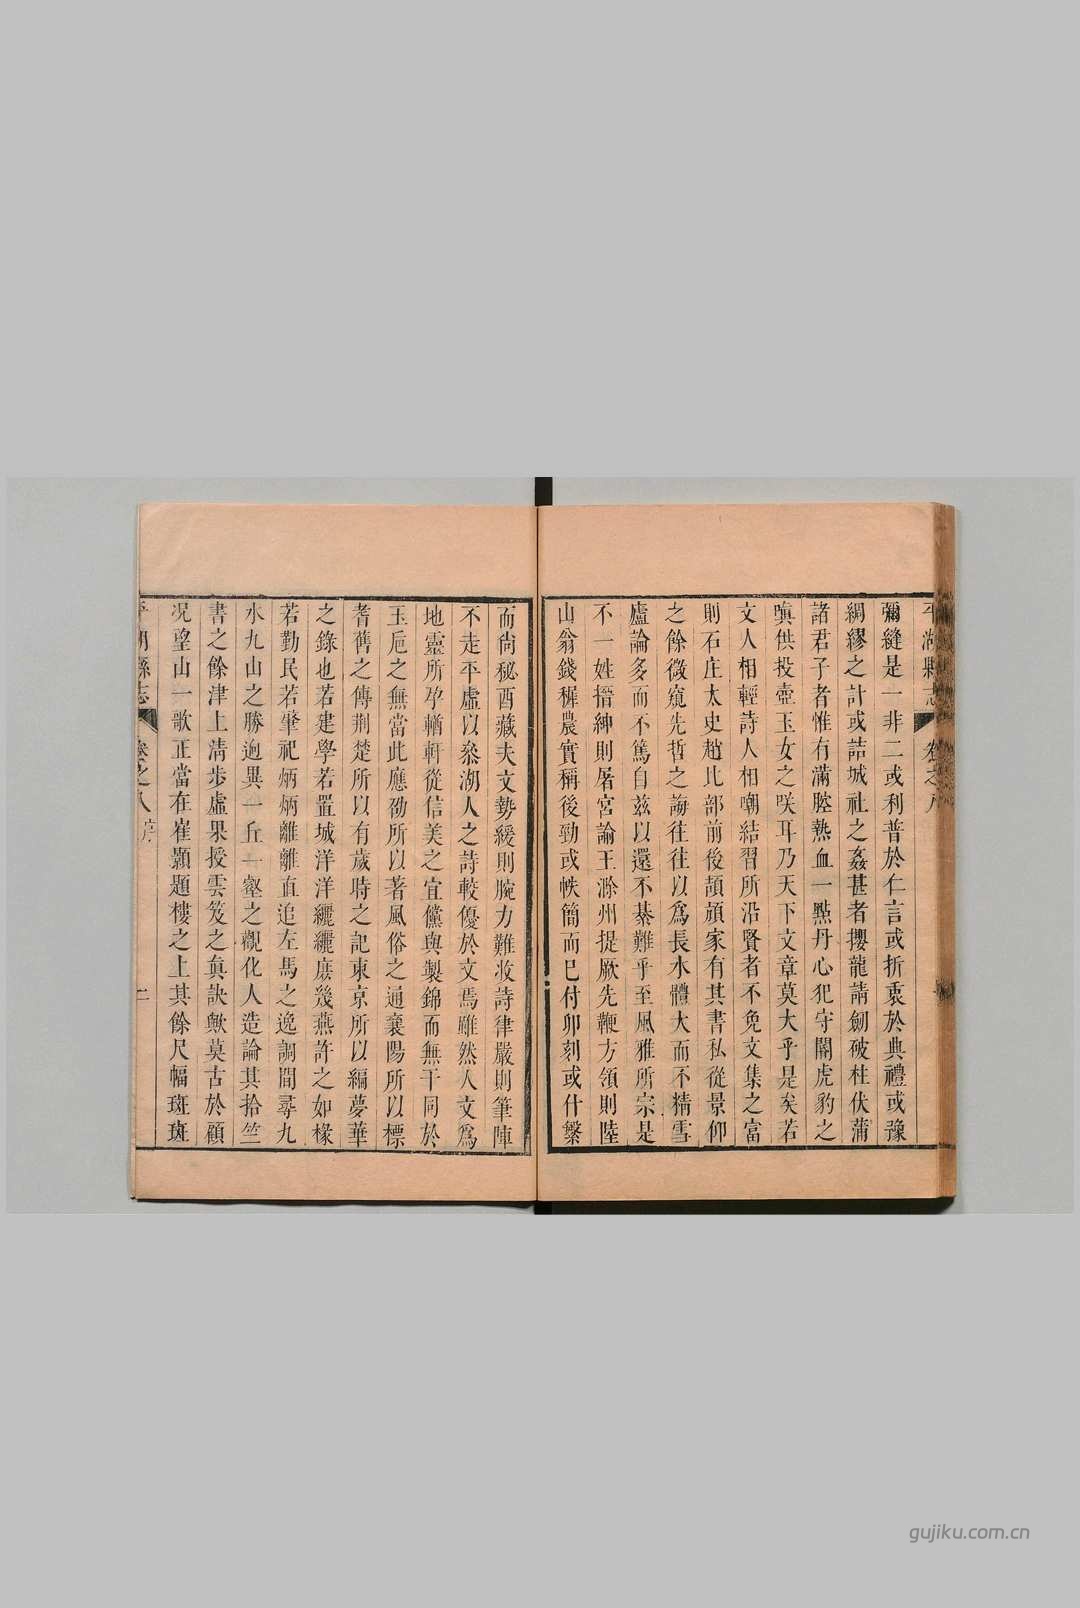 平湖縣志 卷之八
彌縫是一非二或利普於仁言或折衷於典禮或豫
綢繆之計或詰城社之姦甚者攖龍請劍破柱伏蒲
諸君子者惟有滿腔熱血一點丹心犯守關虎豹之
嗔供投壺玉女之咲耳乃天下文章莫大乎是矣若
文人相輕詩人相嘲結習所沿賢者不免文集之富
則石庄太史趙比部前後頡頏家有其書私從景仰
之餘微窺先哲之誨往往以爲長水體大而不精雪
廬論多而不篤自茲以還不綦難乎至風雅所宗是
不一姓搢紳則屠宮諭王滁州提厥先鞭方領則陸
山翁錢穉農實稱後勁或帙簡而已付卯刻或什繁
而尚秘酉藏夫文勢緩則腕力難收詩律嚴則筆陣
不走平虛以叅湖人之詩較優於文焉雖然人文爲
地靈所孕輶軒從信美之宜儻與製錦而無干同於
玉巵之無當此應劭所以著風俗之通襄陽所以標
耆舊之傳荆楚所以有歲時之記東京所以編夢華
之錄也若建學若置城洋洋纚纚庶幾燕許之如椽
若勤民若肇祀炳炳離離直追左馬之逸調間尋九
水九山之勝逈異一丘一壑之觀化人造論其拾竺
書之餘津上清步虛果授雲笈之眞訣歟莫古於顧
况望山一歌正當在崔顥題樓之上其餘尺幅斑斑
平湖縣志 卷之八 序 二
gujiku.com.cn